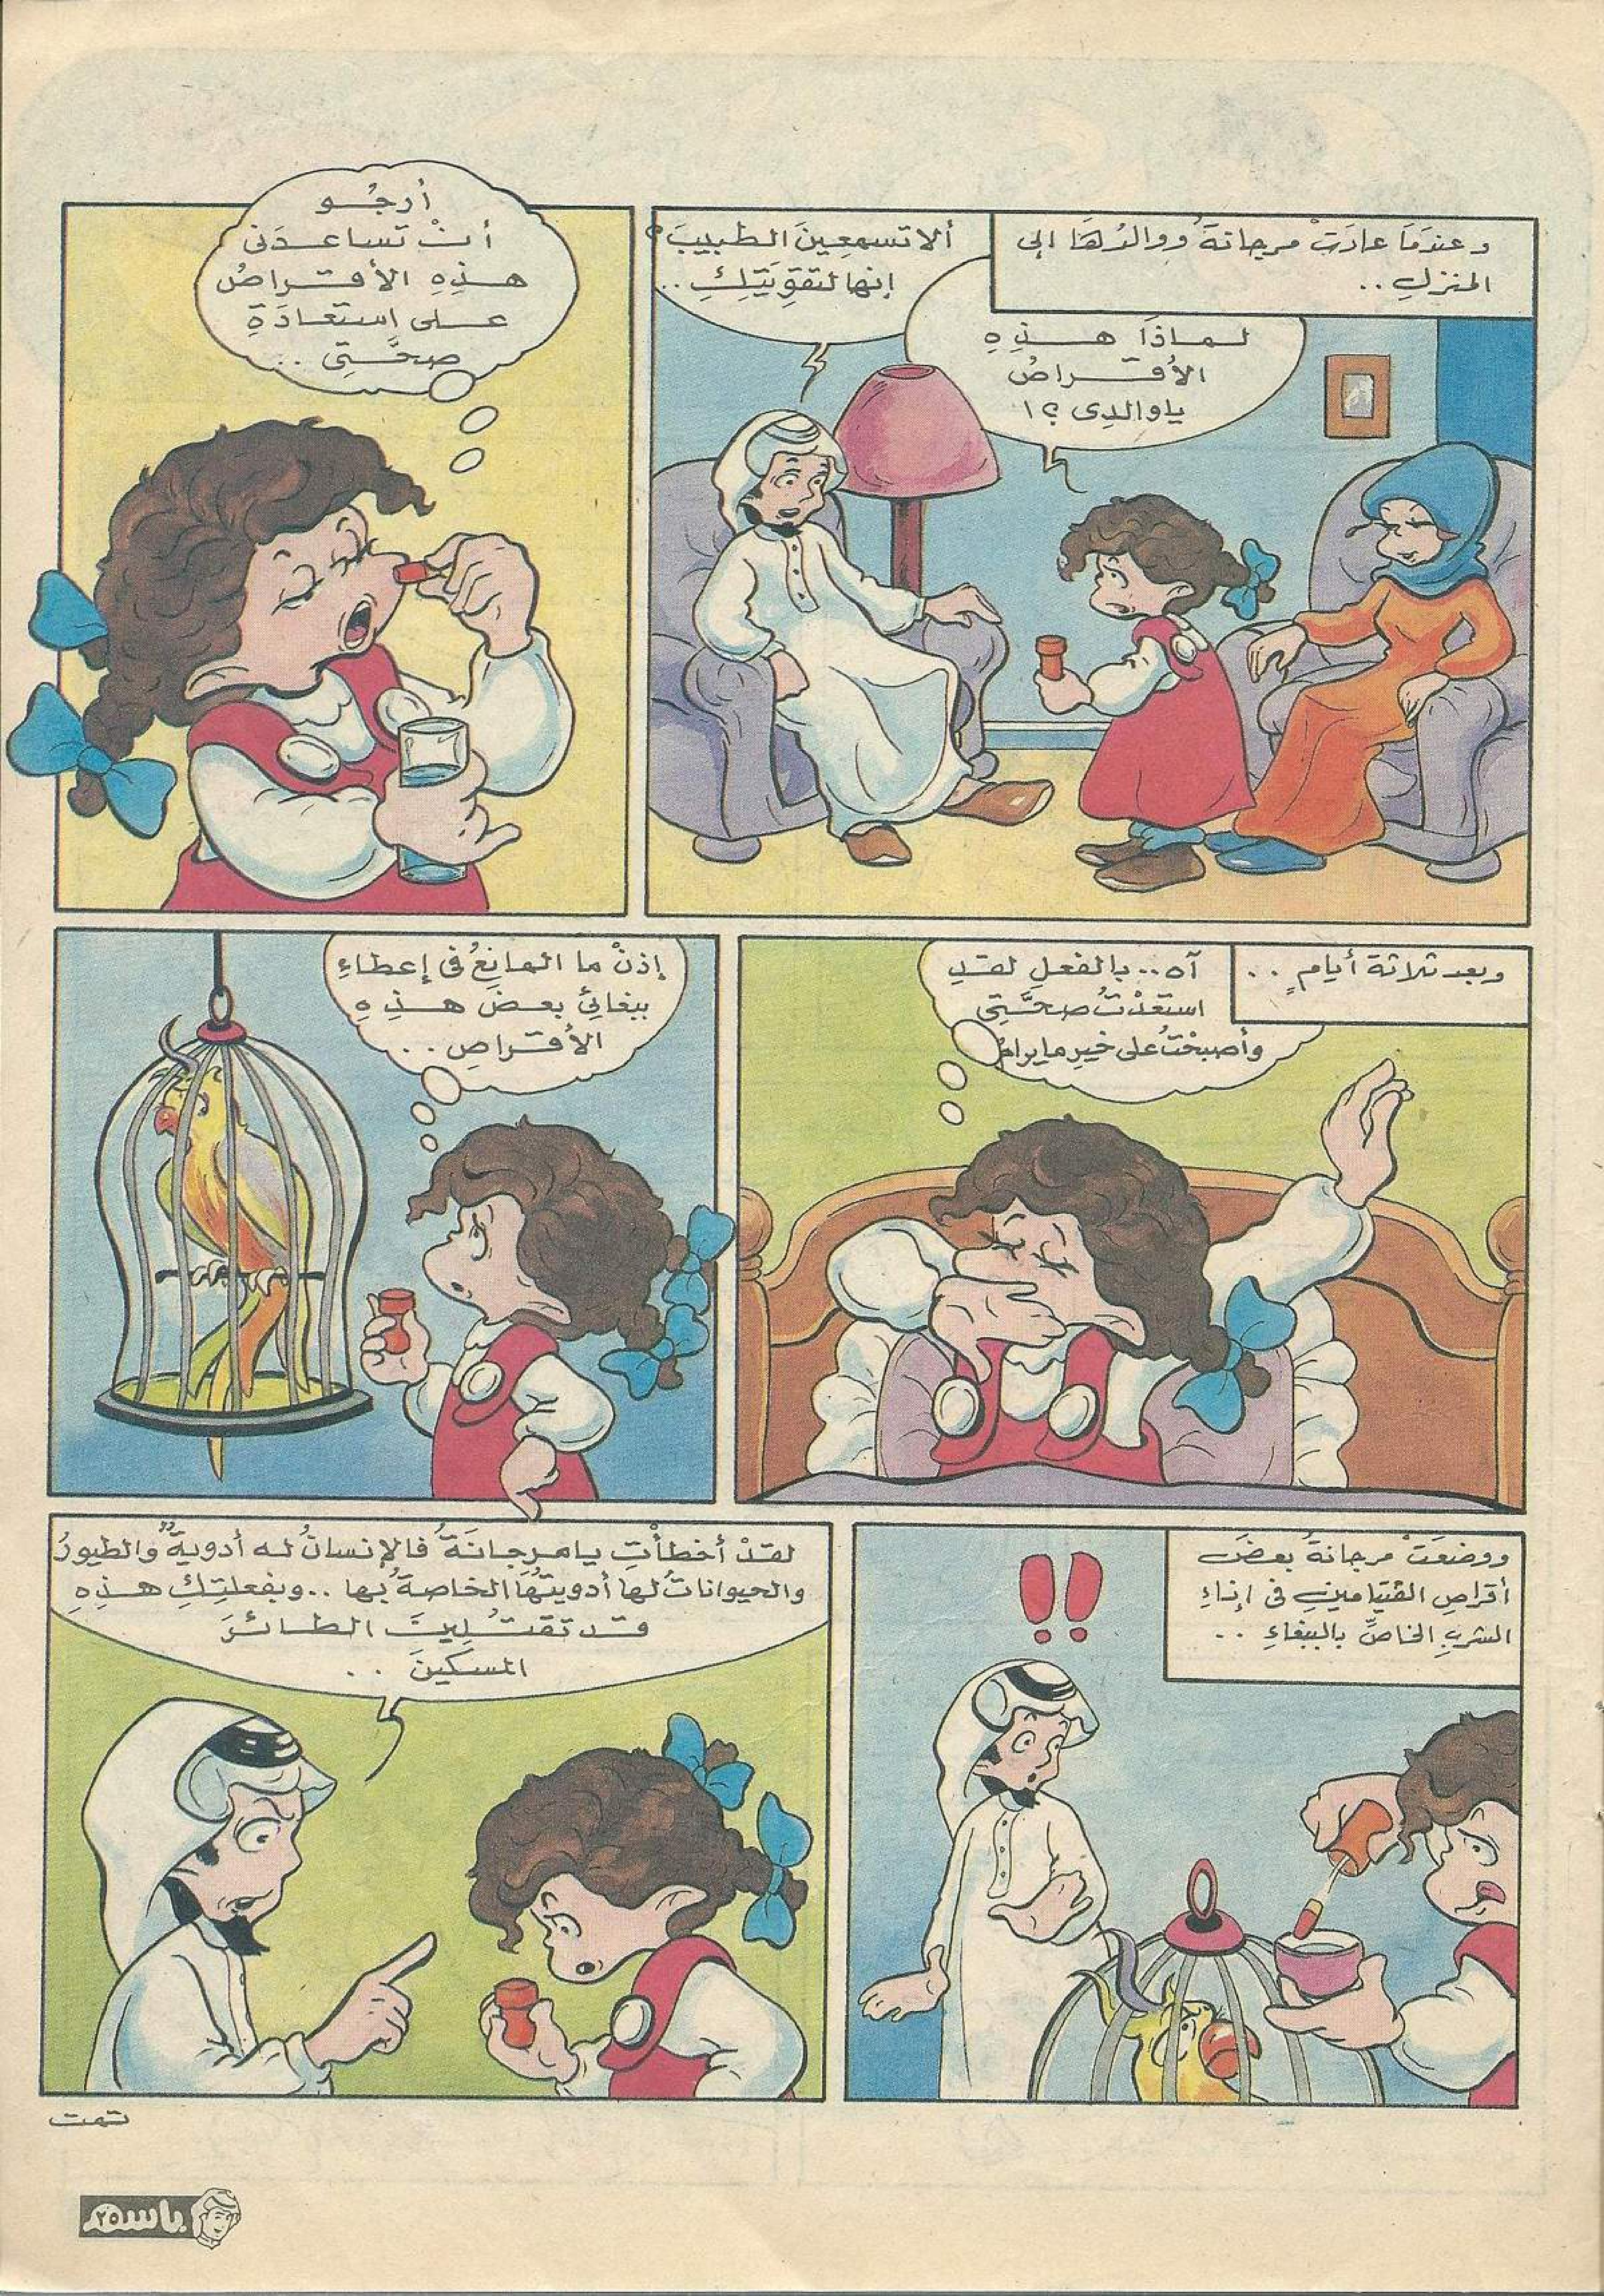 وعندَمَا عادَتْ مرجانةُ ووالدُهَا إلى
المنزلِ ..
لـمـاذَا هـذِهِ
الأقراصُ
ياوالدِى ؟!
ألا تسمعِينَ الطبيبَ؟
إنها لتقوِيَتِكِ ..
أرجُو
أنْ تساعدَنى
هذِهِ الأقراصُ
على استعادَةِ
صحَّتِى ..
وبعد ثلاثة أيامٍ ..
آه .. بالفعلِ لقدِ
استعَدْتُ صحَّتِى
وأصبحْتُ على خيرِ مايرامُ
إذنْ ما المانِعُ فى إعطاءِ
ببغائِى بعضَ هذِهِ
الأقراصِ ..
ووضعَتْ مرجانةُ بعضَ
أقراصِ الڤيتامينِ فى إناءِ
الشربِ الخاصِّ بالببغاءِ ..
!!
لقدْ أخطأْتِ يامرجانَةُ فالإنسانُ له أدويةٌ والطيورُ
والحيواناتُ لها أدويتُهَا الخاصةُ بها .. وبفعلتِكِ هذِهِ
قد تقتُلِينَ الطائرَ
المسكينَ ..
تمت
باسم
٢٥